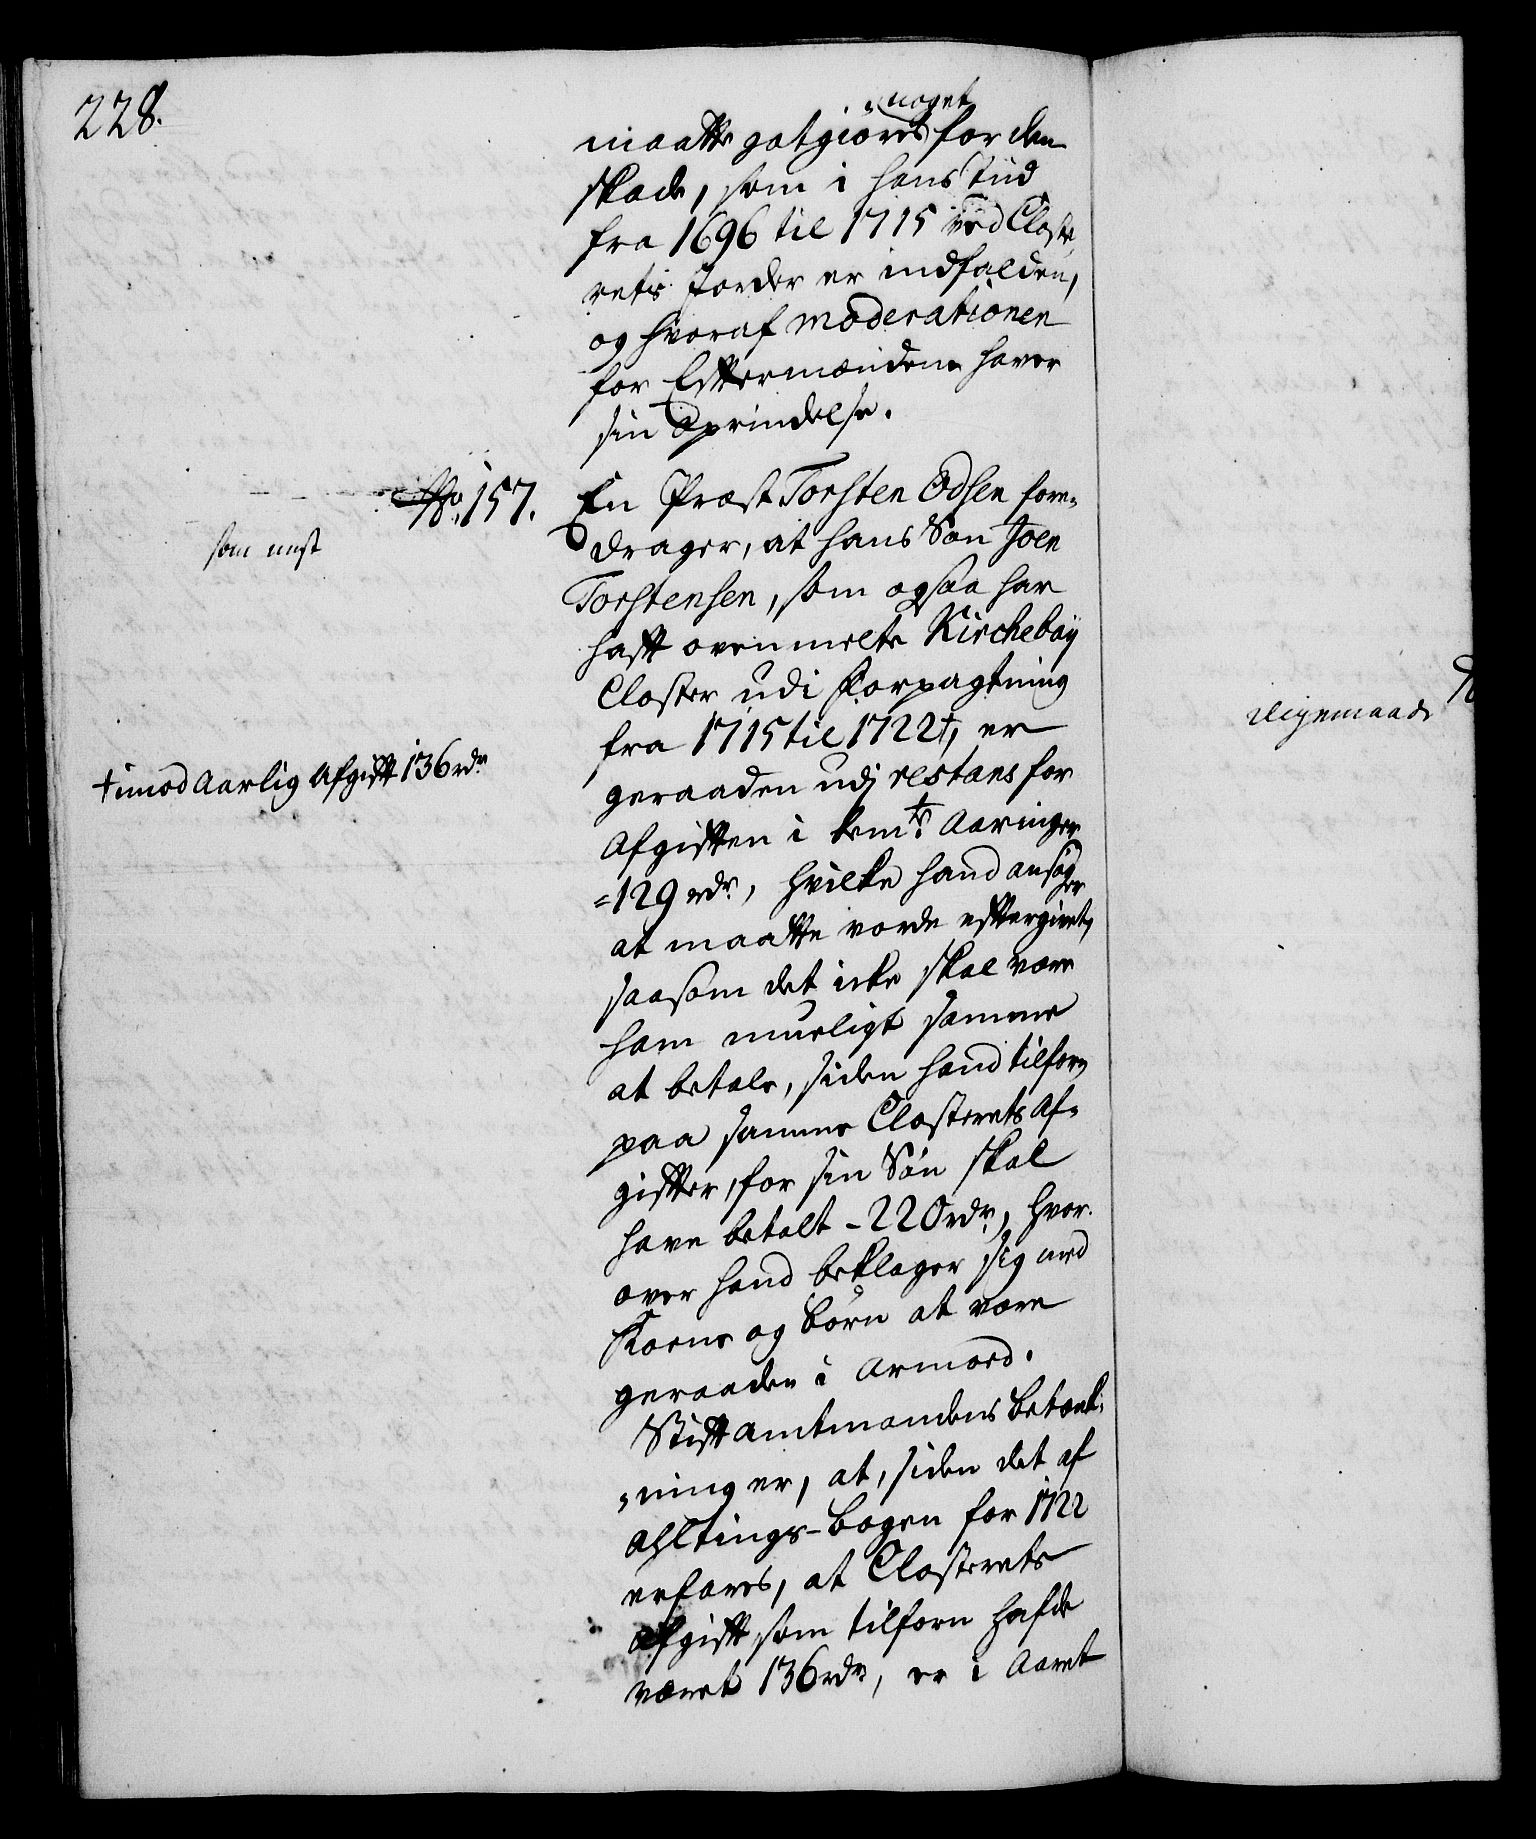 228.
noget
maatte gotgiöres for den
skade, som i hans Tiid
fra 1696 til 1715 ved Closte,
rets Jorder er indfalden,
og hvoraf moderationen
for Efftermændene haver
sin Oprindelse.
No. 157. En Præst Torsten Odsen fore-
som næst
drager, at hans Søn Joen
Torstensen, som ogsaa har
hafft ovenmelte Kirchebaÿ
Closter udi Forpagtning
fra 1715 til 1722 +, er
+ imod Aarlig Afgifft 136 rdr.
geraaden udj restans for
Afgifften i bem.te Aaringer
=129 rdr., hvilke hand ansøger
at maatte vorde efftergivet,
saasom det icke skal være
ham mueligt samme
at betale, siden hand tilforn
paa samme Closterets Af-
giffter, for sin Søn skal
have betalt - 220 rdr, hvor.
over hand beklager sig med
Kone og Børn at være
geraaden i Armoed.
Stifft amtmandens Betænk-
ning er, at, siden det af
Alltings-Bogen for 1722
erfares, at Closterets
Afgifft, som tilforn hafde
været 136 rdr, er i Aaret
Ligemaade